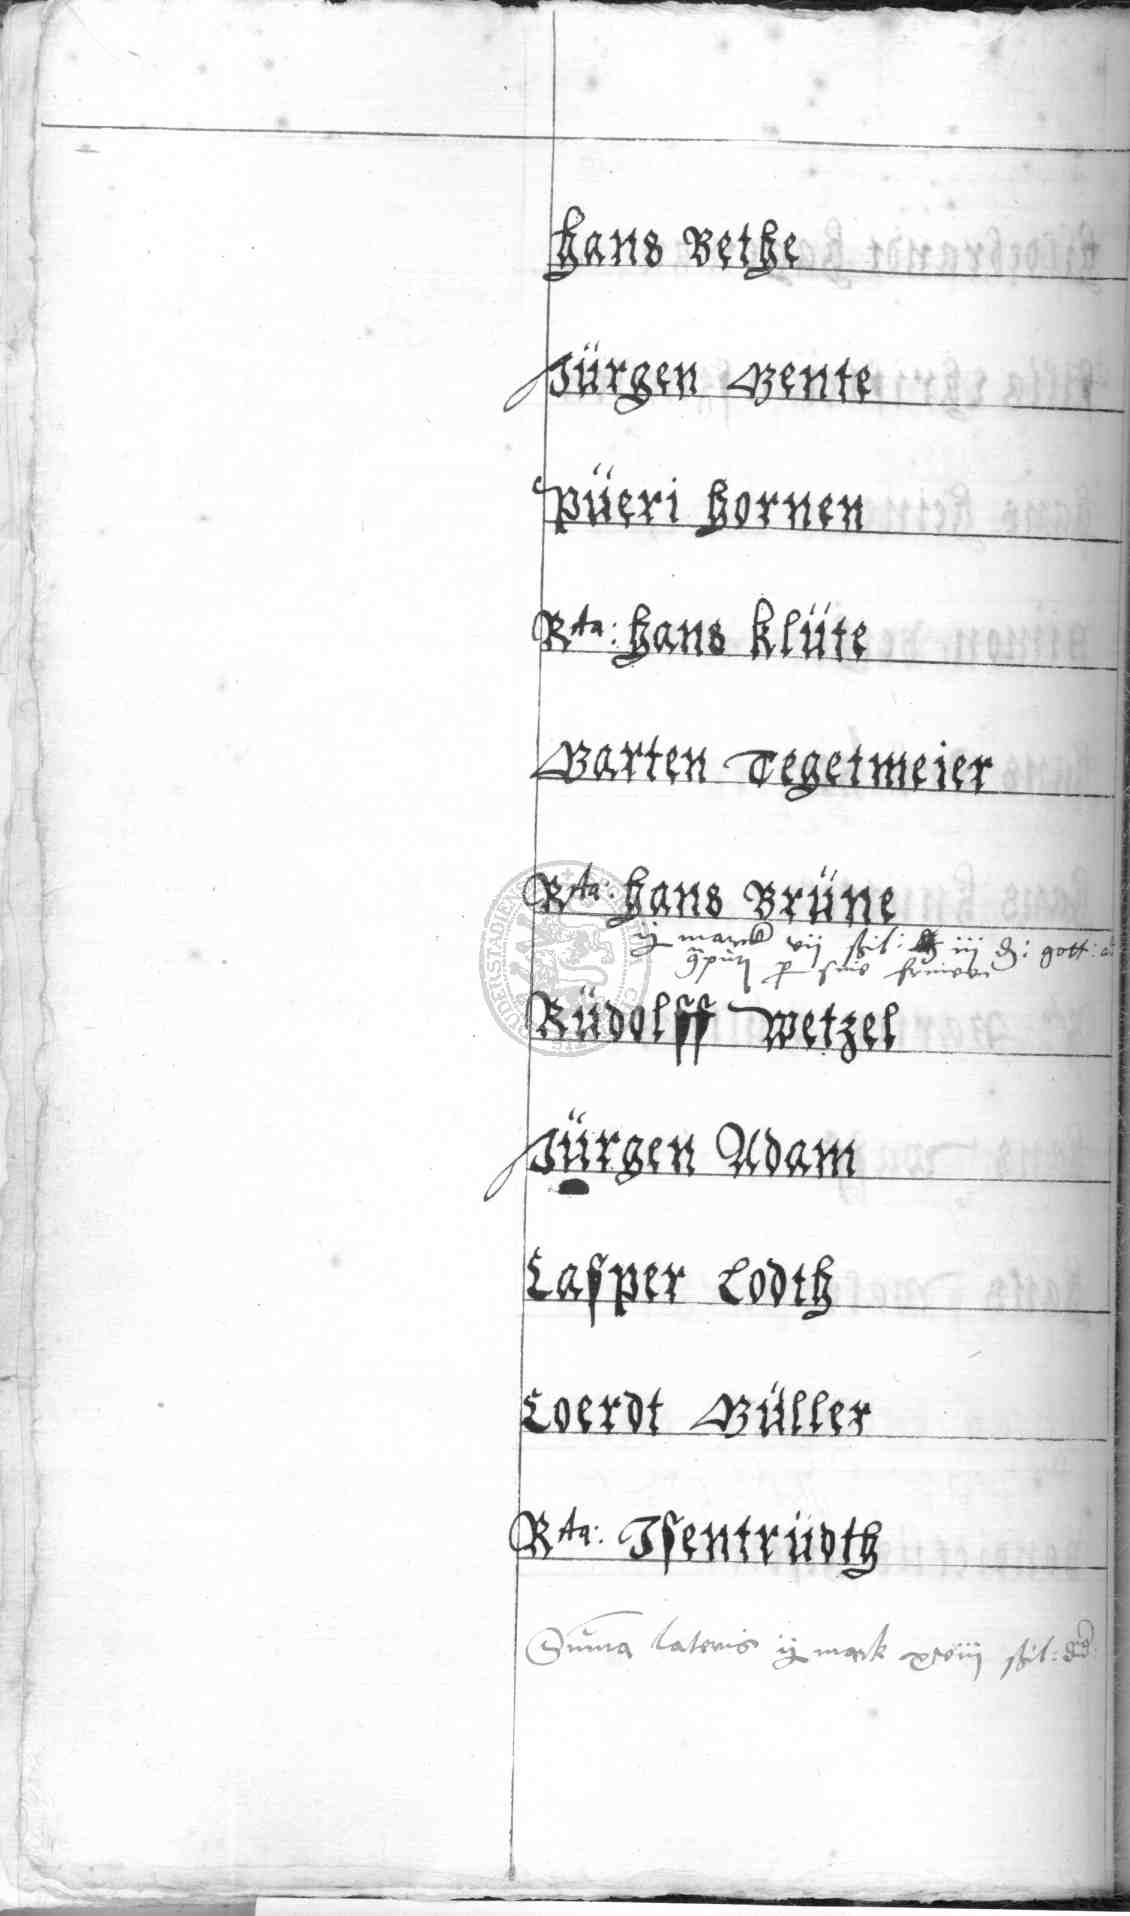 Hans Bethe
Jürgen Bente
Püeri Hornen
Rta: Hans Klüte
Barten Tegetmeier
Rta: Hans Brüne
ij marck vij ßil: iij d: gott:
p suis
Rüdolff Wetzel
Jürgen Adam
Casper Lodth
Coerdt Büller
Rta: Isentrüdth
Suma lateris ij mark ßil: